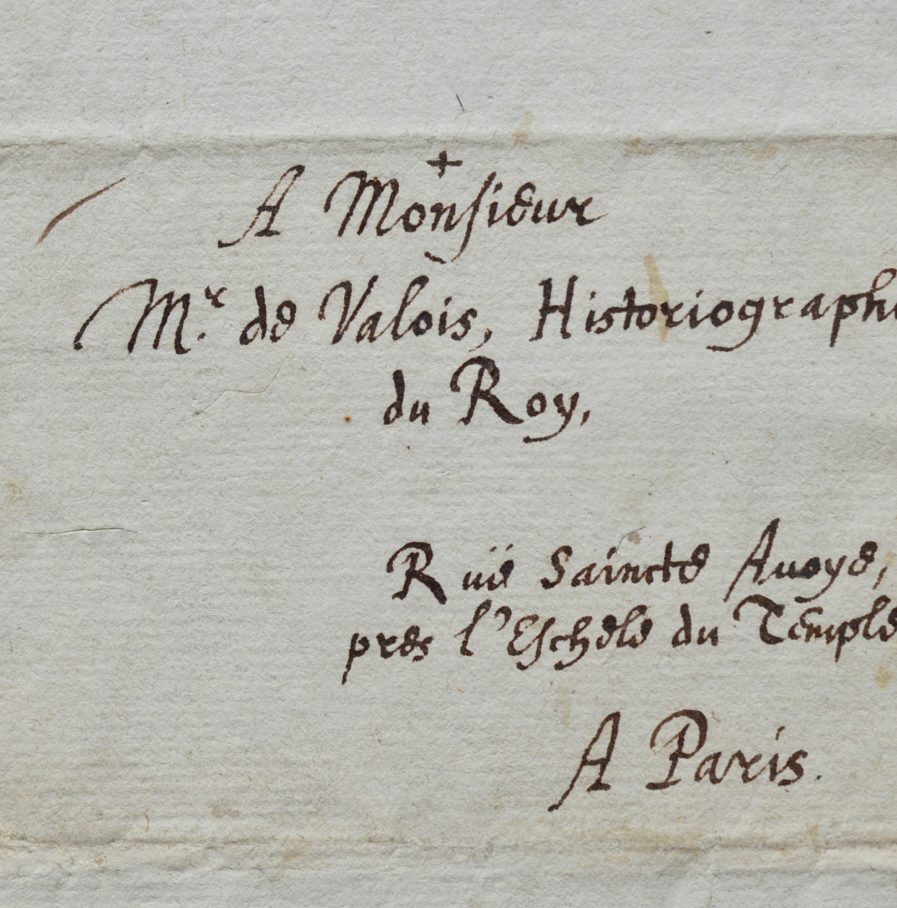 +
A Monsieur
Mr. de Valois, Historiographe
du Roy,
Ruë Saincte Auoye,
pres l'Eschele du Temple
A Paris.